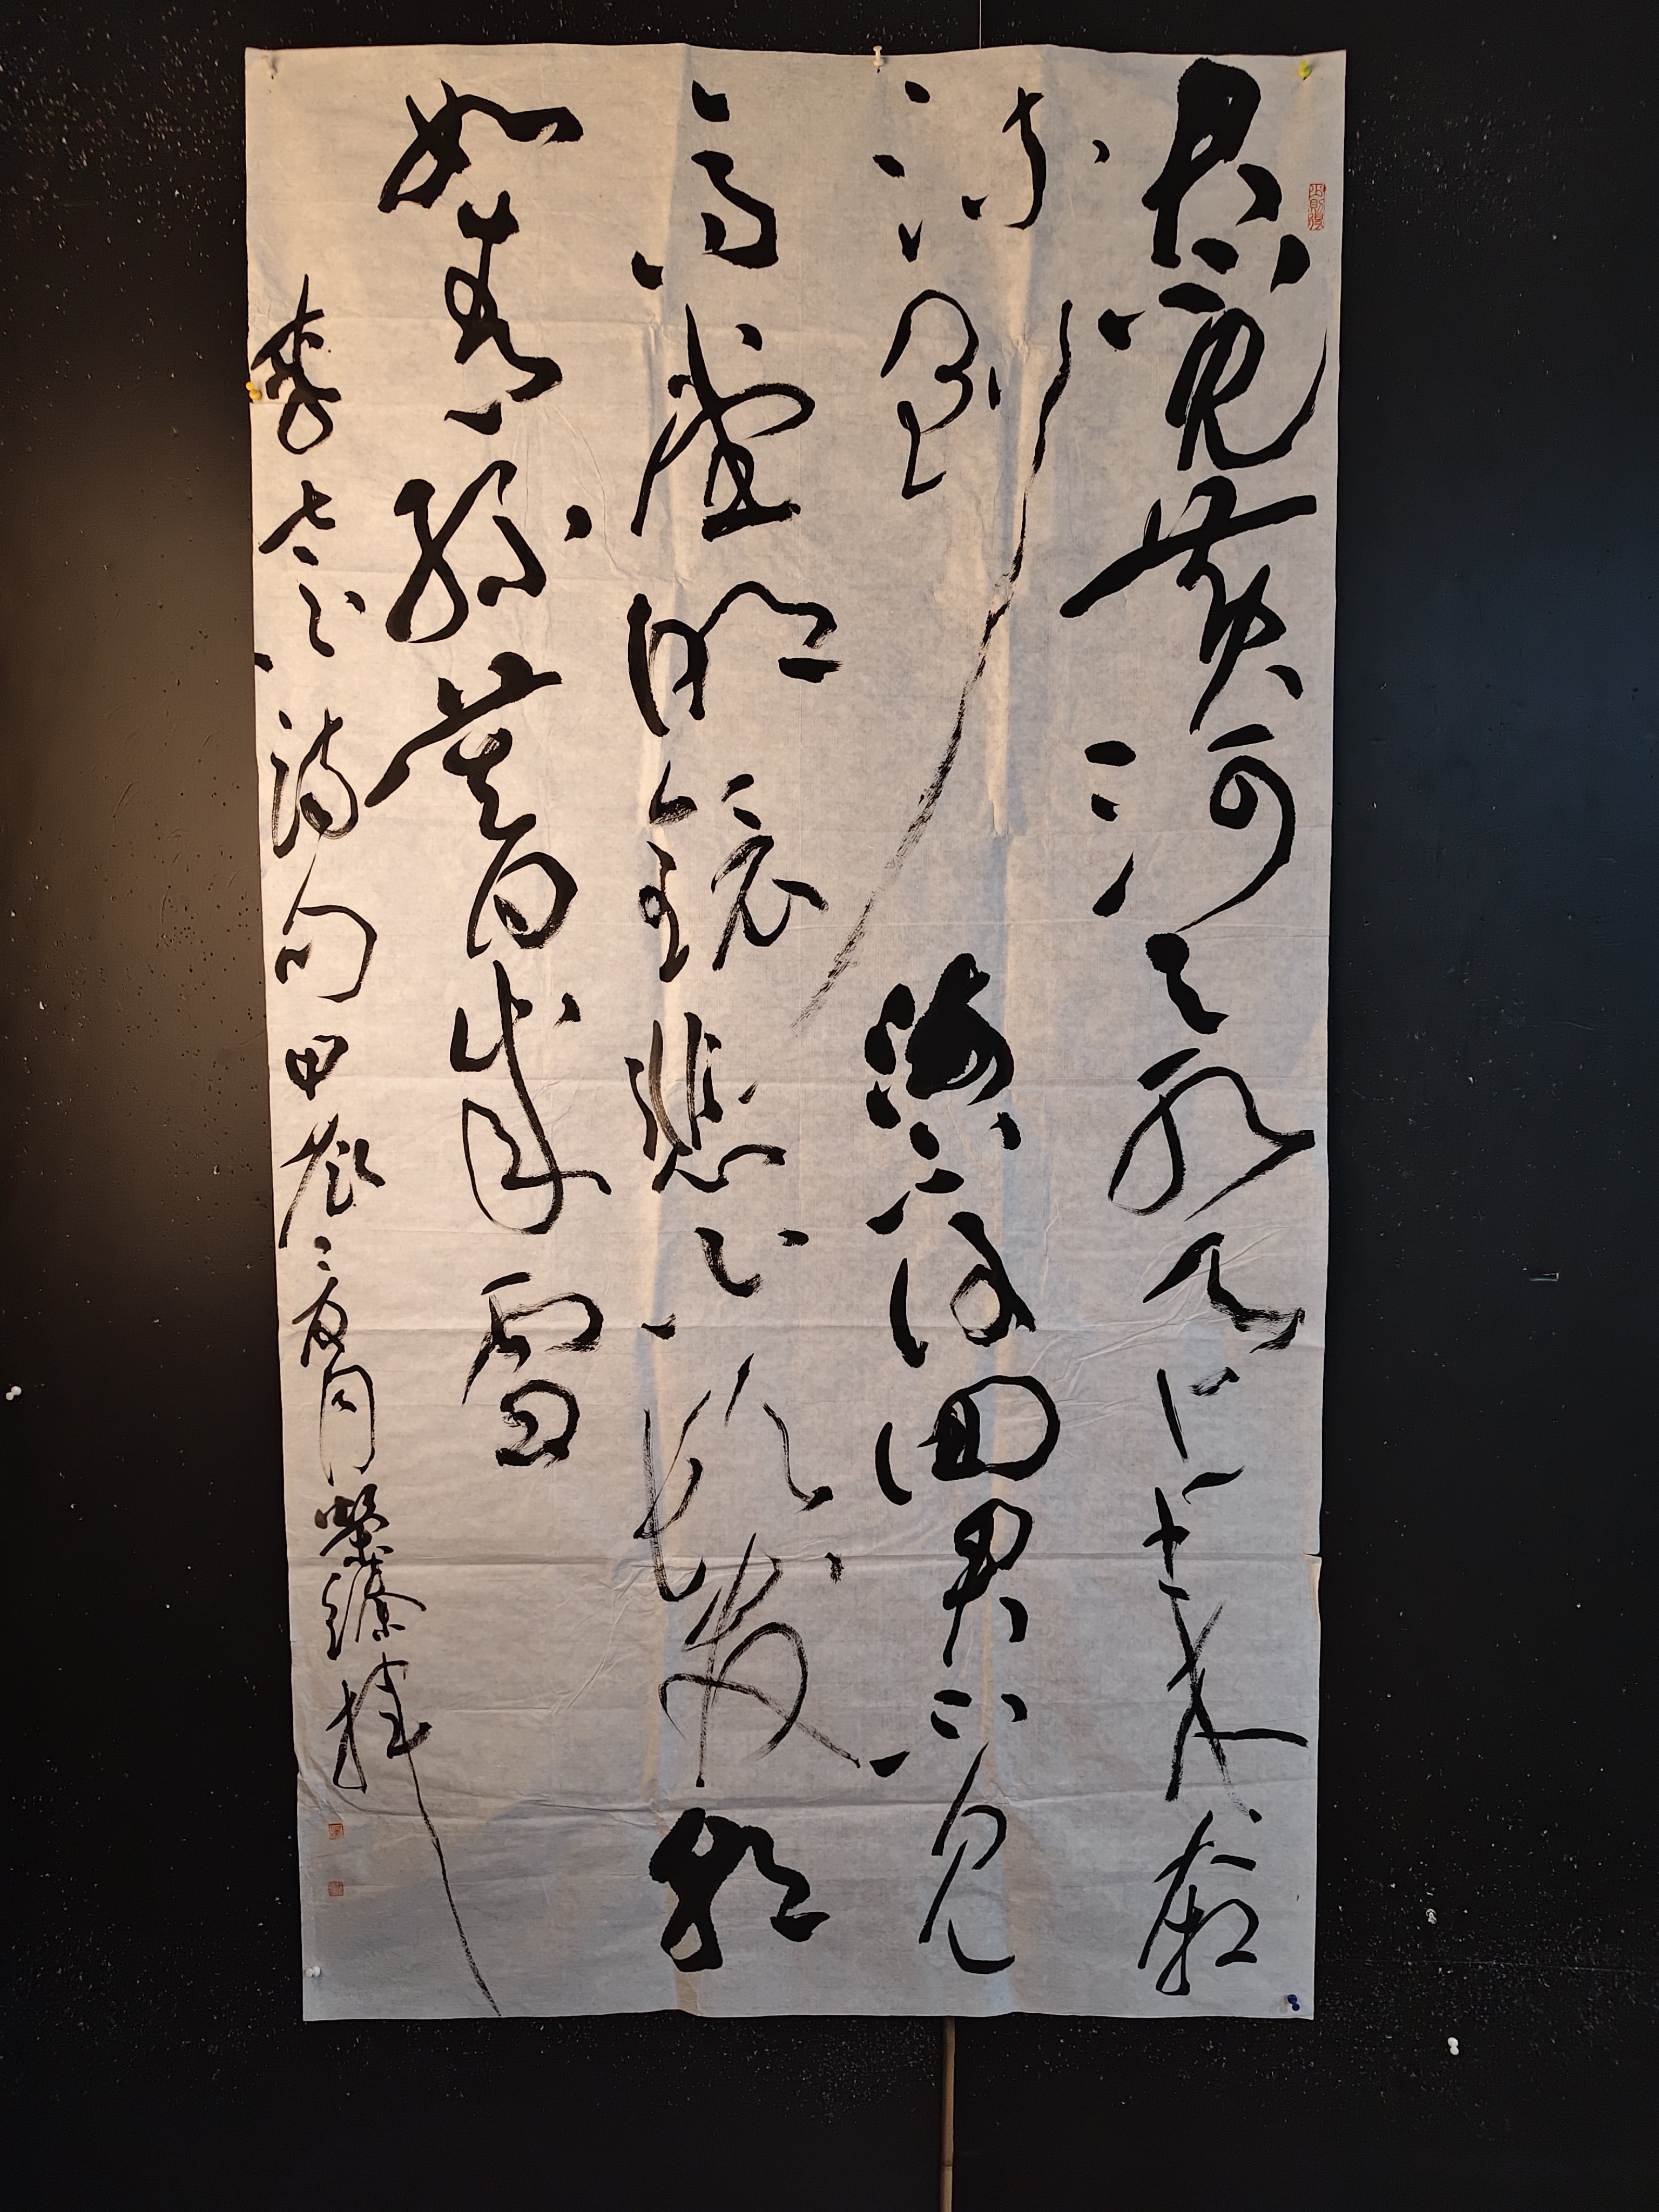 君不見黃河之水天上来奔
流到海不復回君不見
高堂明鏡悲白髮朝
如青絲暮成雪
李太白詩句甲辰